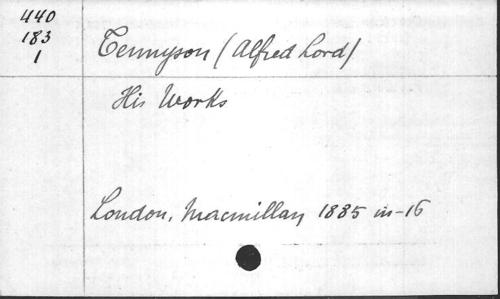 440
183
1
Tennyson (Alfred Lord)
His Works
London, Macmillan 1885 in-16